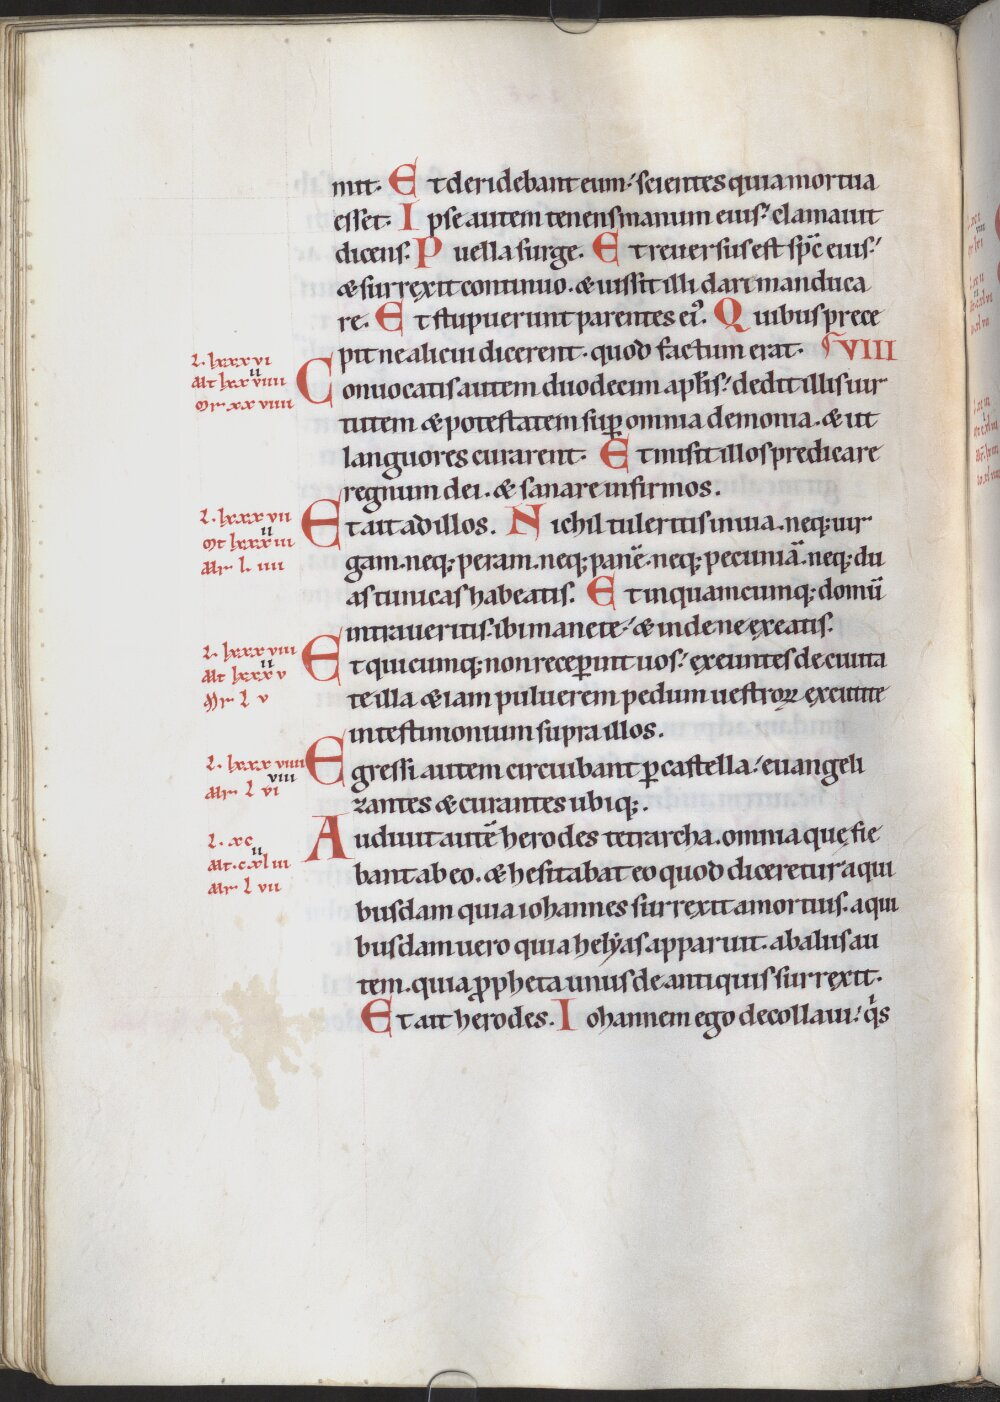 mit. Et deridebant eum: scientes quia mortua
esset. Ipse autem tenens manum eius: clamauit
dicens. Puella surge. Et reuersus est sp̄c eius:
& surrexit continuo. & iussit illi dare manduca
re. Et stupuerunt parentes ei᷒. Quibus prece
pit ne alicui dicerent. quod factum erat. VIII
L. lxxxvi
Mt lxxxviiii
II
Mr xxviiii
Conuocatis autem duodecim apl̄is: dedit illis uir
tutem & potestatem sup̲ omnia demonia. & ut
languores curarent. Et misit illos predicare
regnum dei. & sanare infirmos.
L. lxxxvii
II
Mt lxxxiii
Mr l. iiii
Et ait ad illos. Nichil tuleritis in uia. neq; uir
gam. neq; peram. neq; panē. neq; pecuniā. neq; du
as tunicas habeatis. Et in quamcumq; domū
intraueritis. ibi manete: & inde ne exeatis.
L. lxxxviii
II
Mt lxxxv
Mr L v
Et quicumq; non recep̲int uos: exeuntes de ciuita
te illa & iam puluerem pedum uestroꝝ excutite
in testimonium supra illos.
L. lxxxviiii
VIII
Mr L vi
Egressi autem circuibant ꝑ castella: euangeli
zantes & curantes ubiq;.
L. xc
II
Mt. cxliii
Mr L vii
Audiuit autē herodes tetrarcha. omnia quę fie
bant ab eo. & hesitabat eo quod diceretur a qui
busdam quia iohannes surrexit a mortuis. a qui
busdam uero quia helyas apparuit. ab aliis au
tem. quia ꝓpheta unus de antiquis surrexit.
Et ait herodes. Iohannem ego decollaui: q̓s